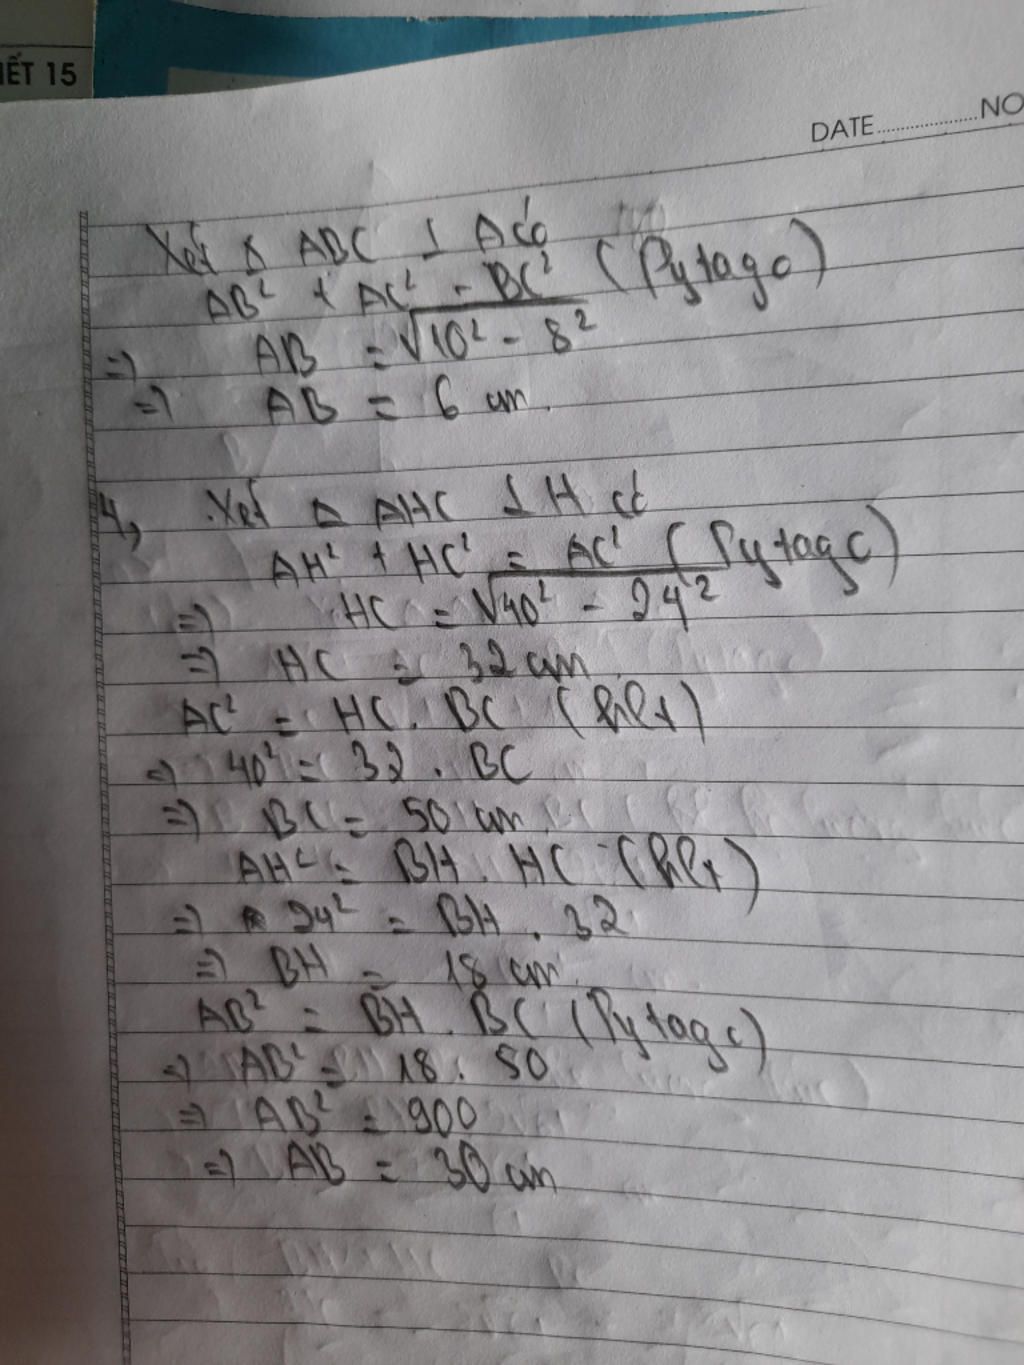 IẾT 15
DATE.....................NO
Xét Δ ABC ⊥ A có
AB² + AC² = BC² (Pytago)
=> AB = √10² - 8²
=> AB = 6 cm.
4, Xét Δ AHC ⊥ H có
AH² + HC² = AC² (Pytago)
=> HC = √40² - 24²
=> HC = 32 cm.
AC² = HC . BC (hlt)
=> 40² = 32 . BC
=> BC = 50 cm.
AH² = BH . HC (hlt)
=> 24² = BH . 32
=> BH = 18 cm.
AB² = BH . BC (Pytago)
=> AB² = 18 . 50
=> AB² = 900
=> AB = 30 cm